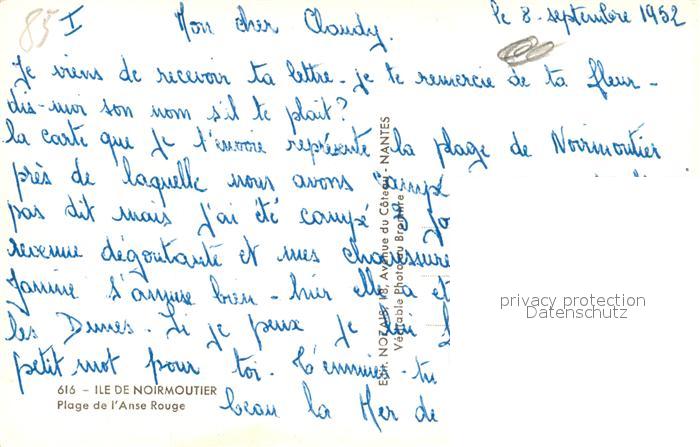 85
I Mon cher Claudy. le 8 septembre 1952
Je viens de recevoir ta lettre - je te remercie de ta fleur -
dis-moi son nom s'il te plait?
la carte que je t'envoie représente la plage de Noirmoutier
près de laquelle nous avons "campé
pas dit mais j'ai été campé
revenue dégoutante et mes chaussure
Janine s'amuse bien - hier elle a et
les Dunes. Si je peux je
petit mot pour toi. T'ennuies-tu
beau la Mer de
616 – ILE DE NOIRMOUTIER
Plage de l'Anse Rouge
Edit. NOZAIS, 18, Avenue du Côteau - NANTES
Véritable Photo au Bromure
privacy protection
Datenschutz